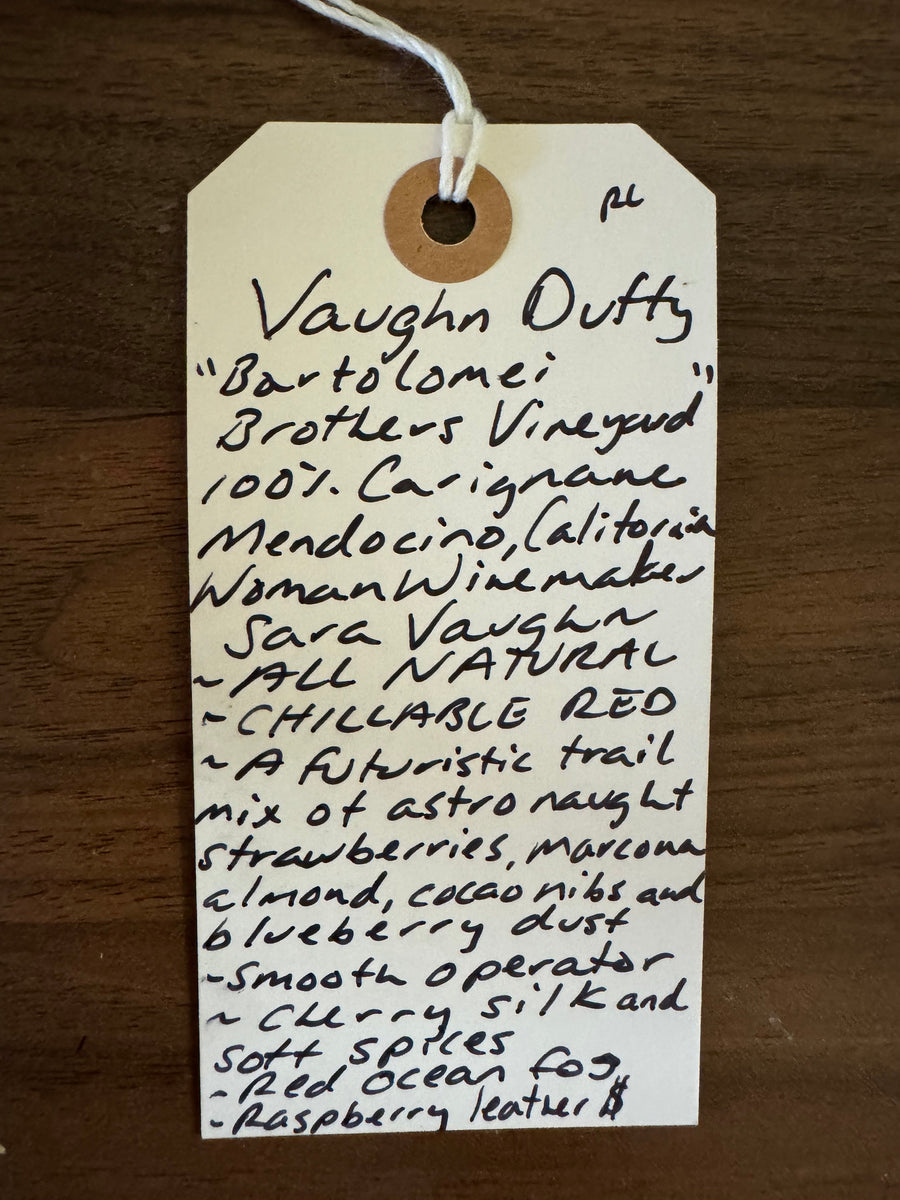 RL
Vaughn Duffy
"Bartolomei "
Brothers Vineyard
100% Carignane
Mendocino, California
Woman Winemaker
Sara Vaughn
~ALL NATURAL
~CHILLABLE RED
~A futuristic trail
mix of astronaught
strawberries, marcona
almond, cocao nibs and
blueberry dust
~Smooth operator
~Cherry silk and
soft spices
~Red ocean fog
~Raspberry leather $